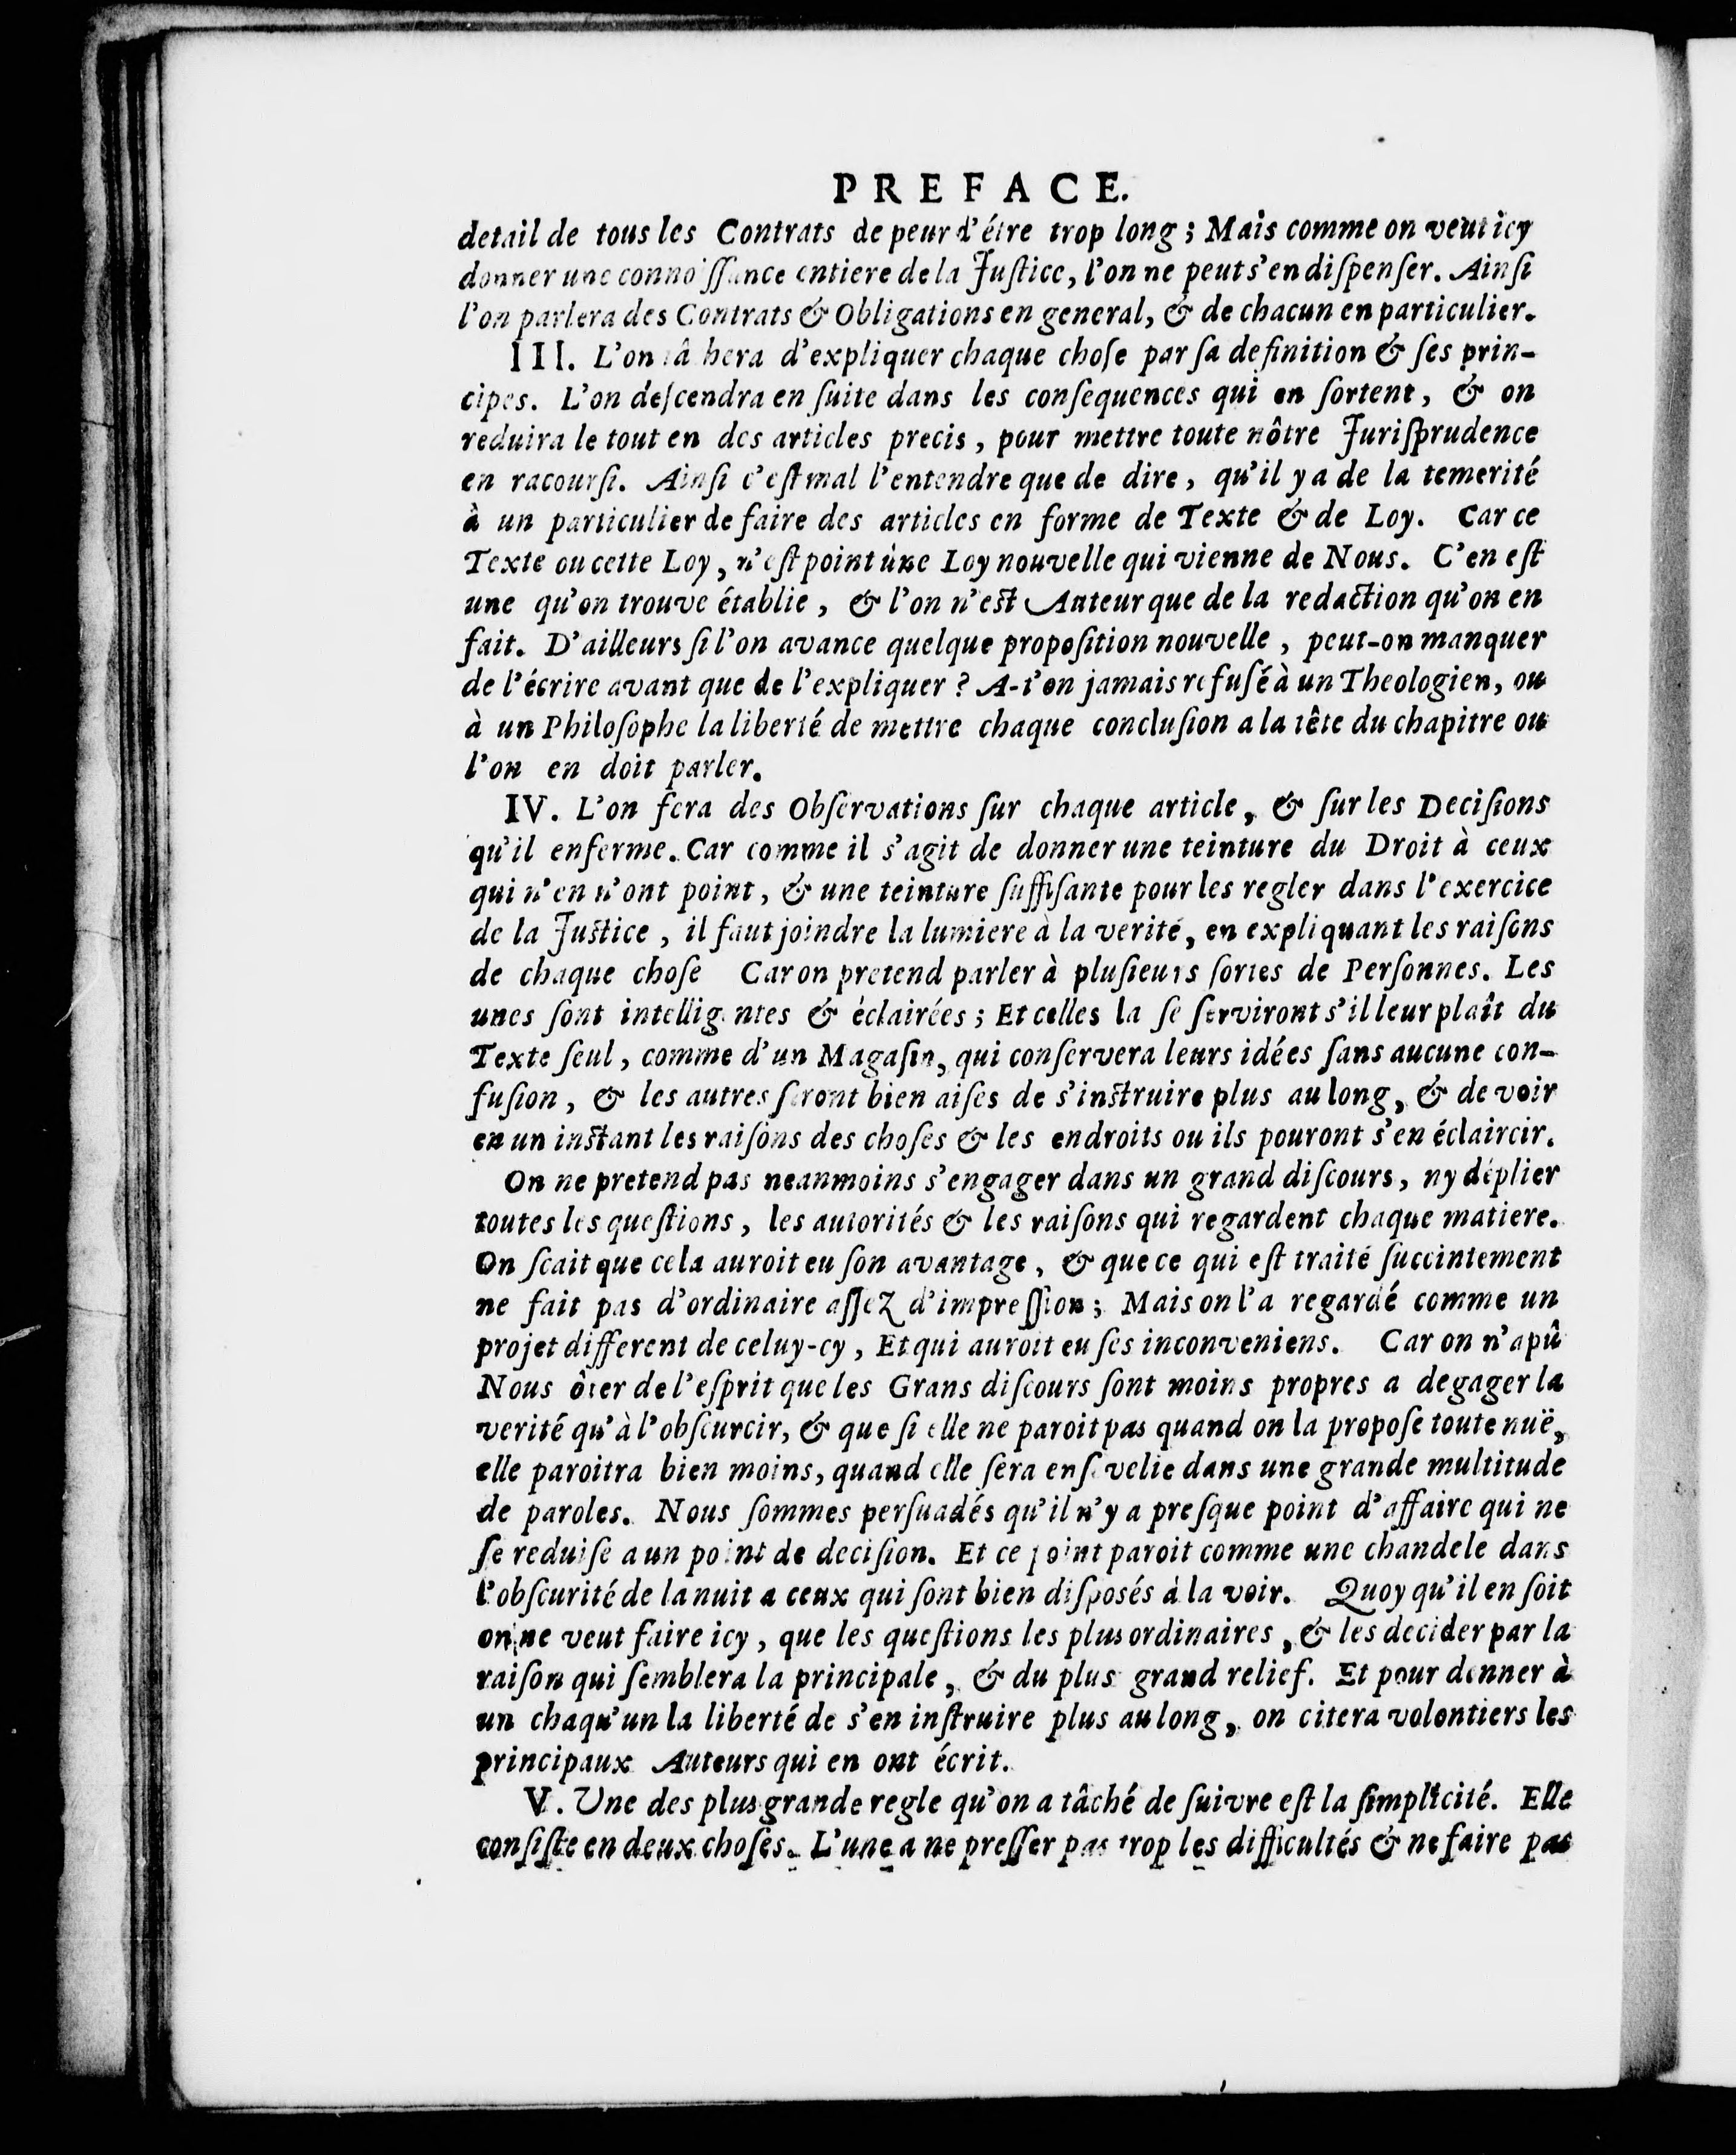 PREFACE.
detail de tous les Contrats de peur d'étre trop long ; Mais comme on veut icy
donner une connoissance entiere de la Justice, l'on ne peut s'en dispenser. Ainsi
l'on parlera des Contrats & Obligations en general, & de chacun en particulier.
III. L'on tâchera d'expliquer chaque chose par sa definition & ses prin-
cipes. L'on descendra en suite dans les consequences qui en sortent, & on
reduira le tout en des articles precis, pour mettre toute nôtre Jurisprudence
en racoursi. Ainsi c'est mal l'entendre que de dire, qu'il y a de la temerité
à un particulier de faire des articles en forme de Texte & de Loy. Car ce
Texte ou cette Loy, n'est point ùne Loy nouvelle qui vienne de Nous. C'en est
une qu'on trouve établie, & l'on n'est Auteur que de la redaction qu'on en
fait. D'ailleurs si l'on avance quelque proposition nouvelle, peut-on manquer
de l'écrire avant que de l'expliquer ? A-t'on jamais refusé à un Theologien, ou
à un Philosophe la liberté de mettre chaque conclusion a la tête du chapitre ou
l'on en doit parler.
IV. L'on fera des Observations sur chaque article, & sur les Decisions
qu'il enferme. Car comme il s'agit de donner une teinture du Droit à ceux
qui n'en n'ont point, & une teinture suffisante pour les regler dans l'exercice
de la Justice, il faut joindre la lumiere à la verité, en expliquant les raisons
de chaque chose Car on pretend parler à plusieurs sortes de Personnes. Les
unes sont intelligentes & éclairées ; Et celles la se serviront s'il leur plaît du
Texte seul, comme d'un Magasin, qui conservera leurs idées sans aucune con-
fusion, & les autres seront bien aises de s'instruire plus au long, & de voir
en un instant les raisons des choses & les endroits ou ils pouront s'en éclaircir.
On ne pretend pas neanmoins s'engager dans un grand discours, ny déplier
toutes les questions, les autorités & les raisons qui regardent chaque matiere.
On scait que cela auroit eu son avantage, & que ce qui est traité succintement
ne fait pas d'ordinaire assez d'impression ; Mais on l'a regardé comme un
projet different de celuy-cy, Et qui auroit eu ses inconveniens. Car on n'a pû
Nous ôter de l'esprit que les Grans discours sont moins propres a degager la
verité qu'à l'obscurcir, & que si elle ne paroit pas quand on la propose toute nuë,
elle paroitra bien moins, quand elle sera ensevelie dans une grande multitude
de paroles. Nous sommes persuadés qu'il n'y a presque point d'affaire qui ne
se reduise a un point de decision. Et ce point paroit comme une chandele dans
l'obscurité de la nuit a ceux qui sont bien disposés à la voir. Quoy qu'il en soit
on ne veut faire icy, que les questions les plus ordinaires, & les decider par la
raison qui semblera la principale, & du plus grand relief. Et pour donner à
un chaqu'un la liberté de s'en instruire plus au long, on citera volontiers les
principaux Auteurs qui en ont écrit.
V. Une des plus grande regle qu'on a tâché de suivre est la simplicité. Elle
consiste en deux choses. L'une a ne presser pas trop les difficultés & ne faire pas